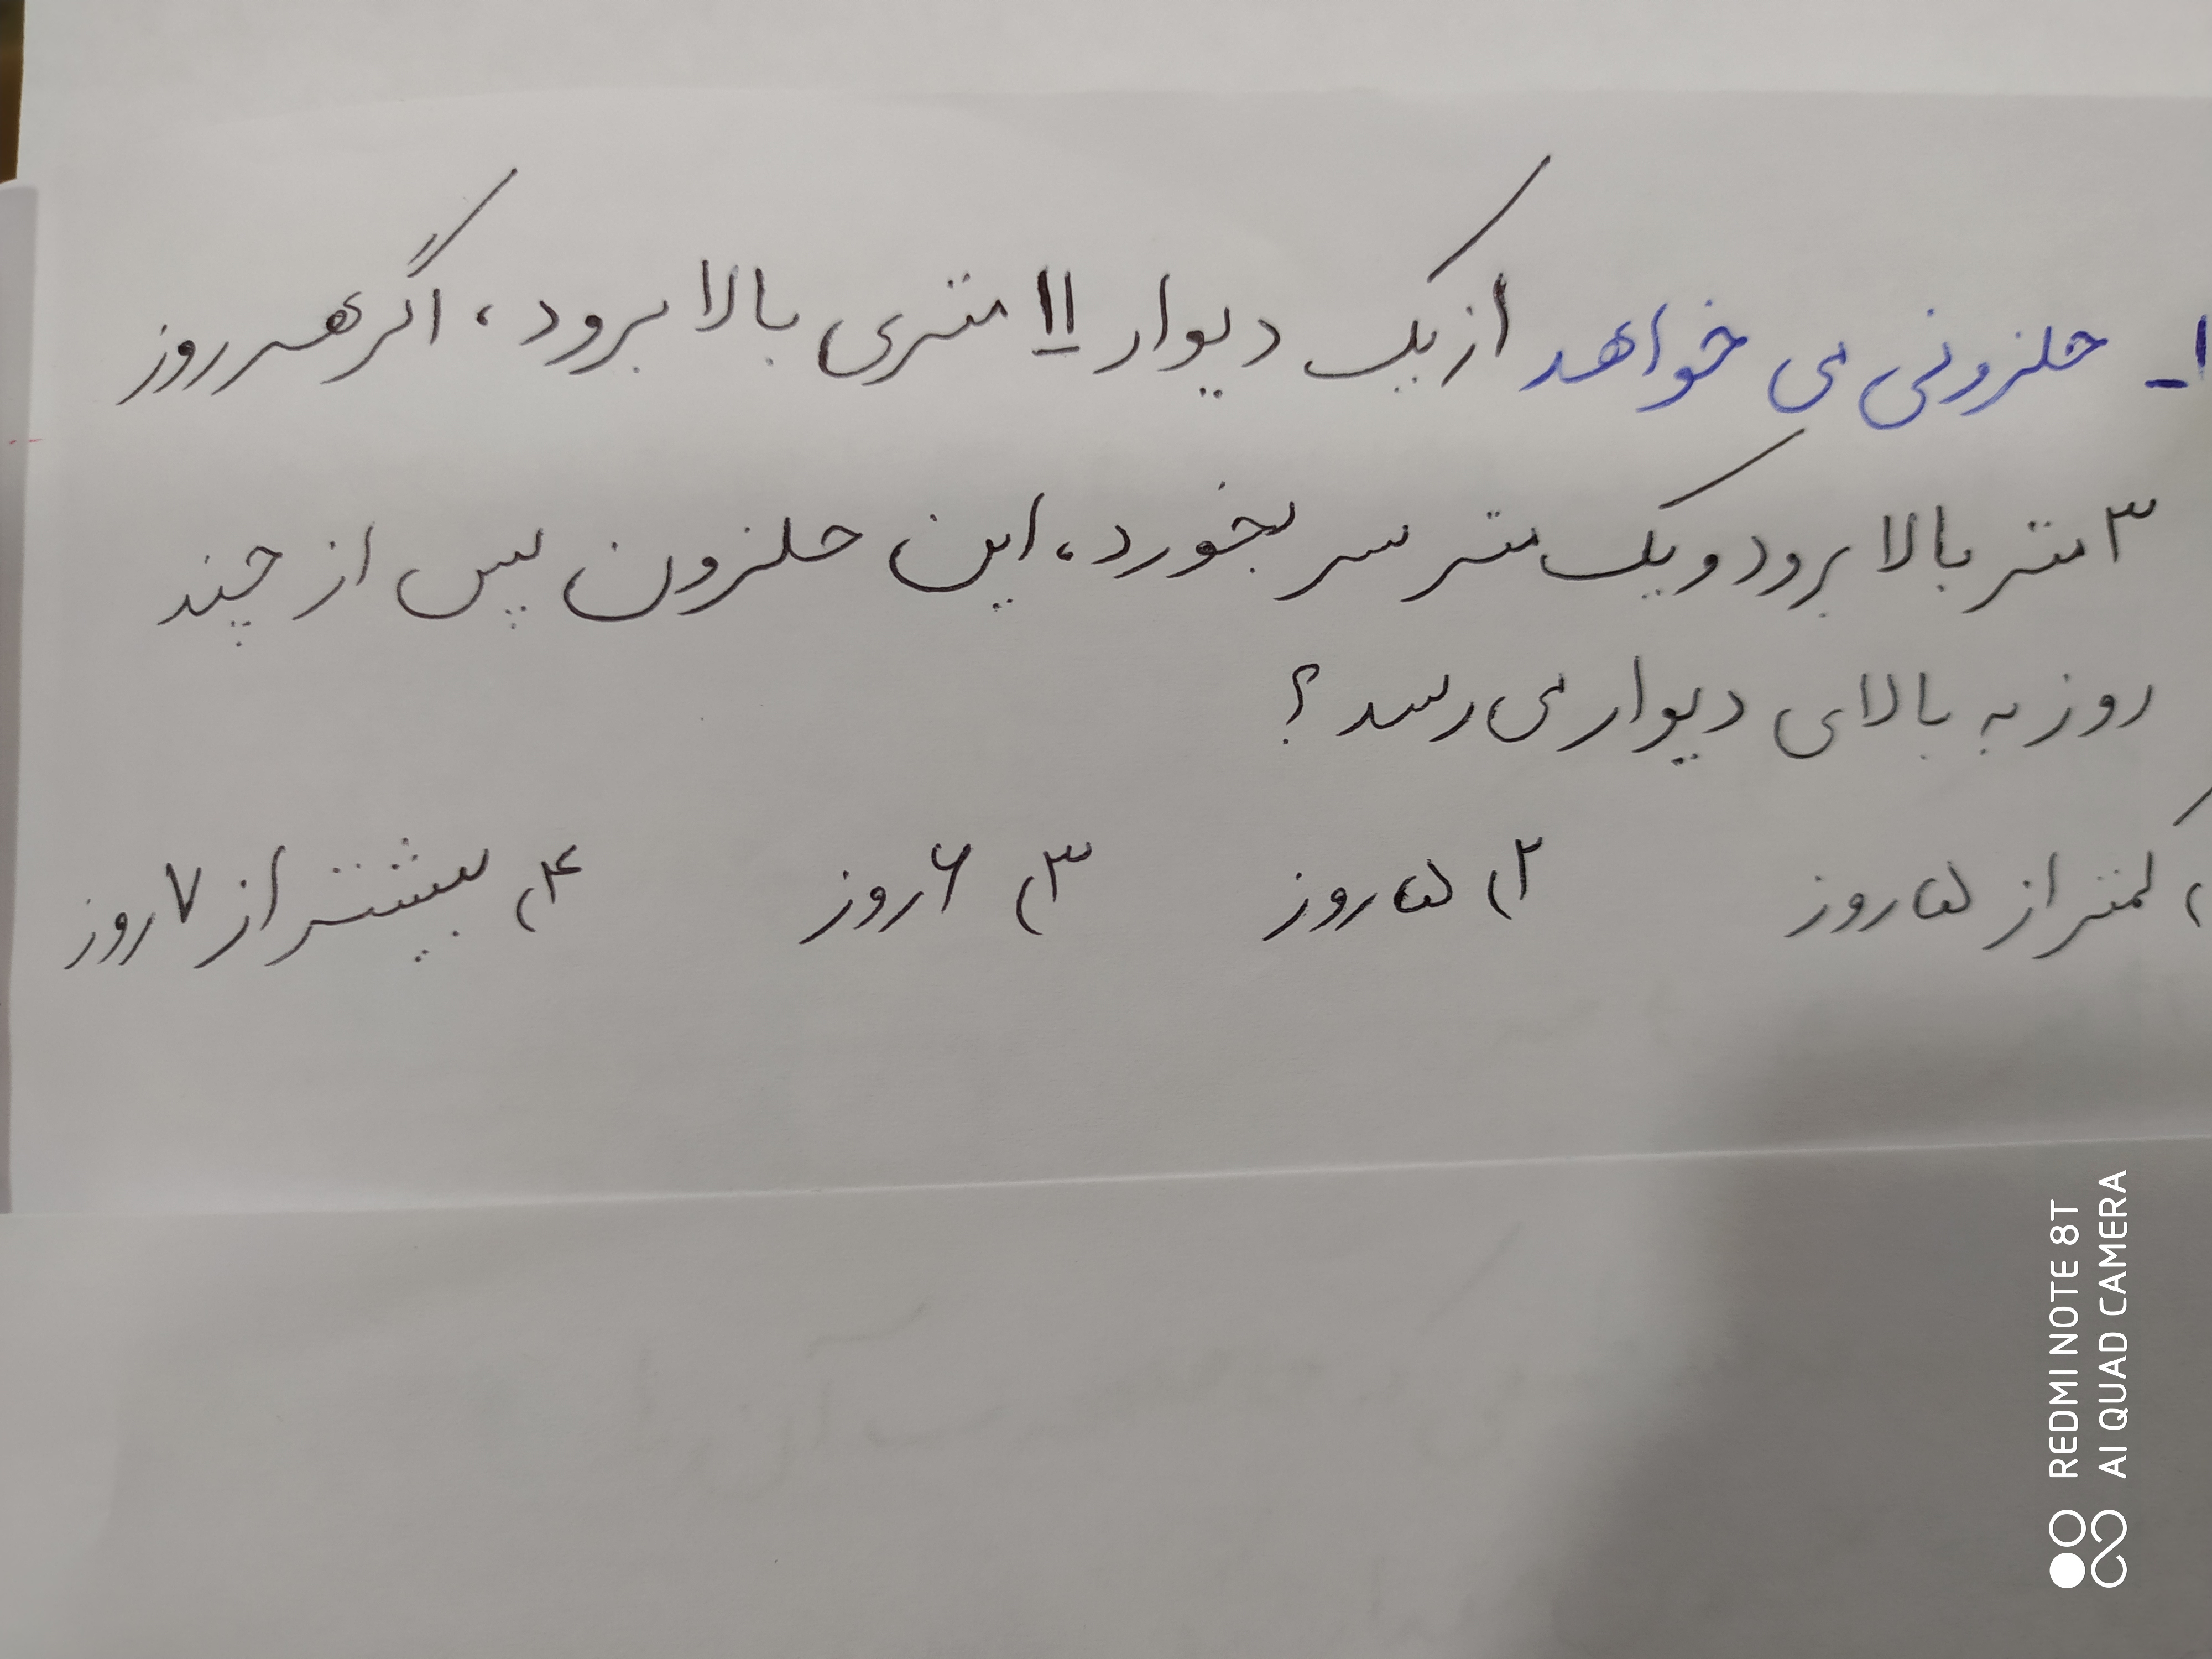 ۱- حلزونی می خواهد از یک دیوار ۱۱ متری بالا برود، اگر هر روز
۳ متر بالا برود و یک متر سر بخورد، این حلزون پس از چند
روز به بالای دیوار می رسد؟
) کمتر از ۵ روز ۲) ۵ روز ۳) ۶ روز ۴) بیشتر از ۷ روز
REDMI NOTE 8T
AI QUAD CAMERA